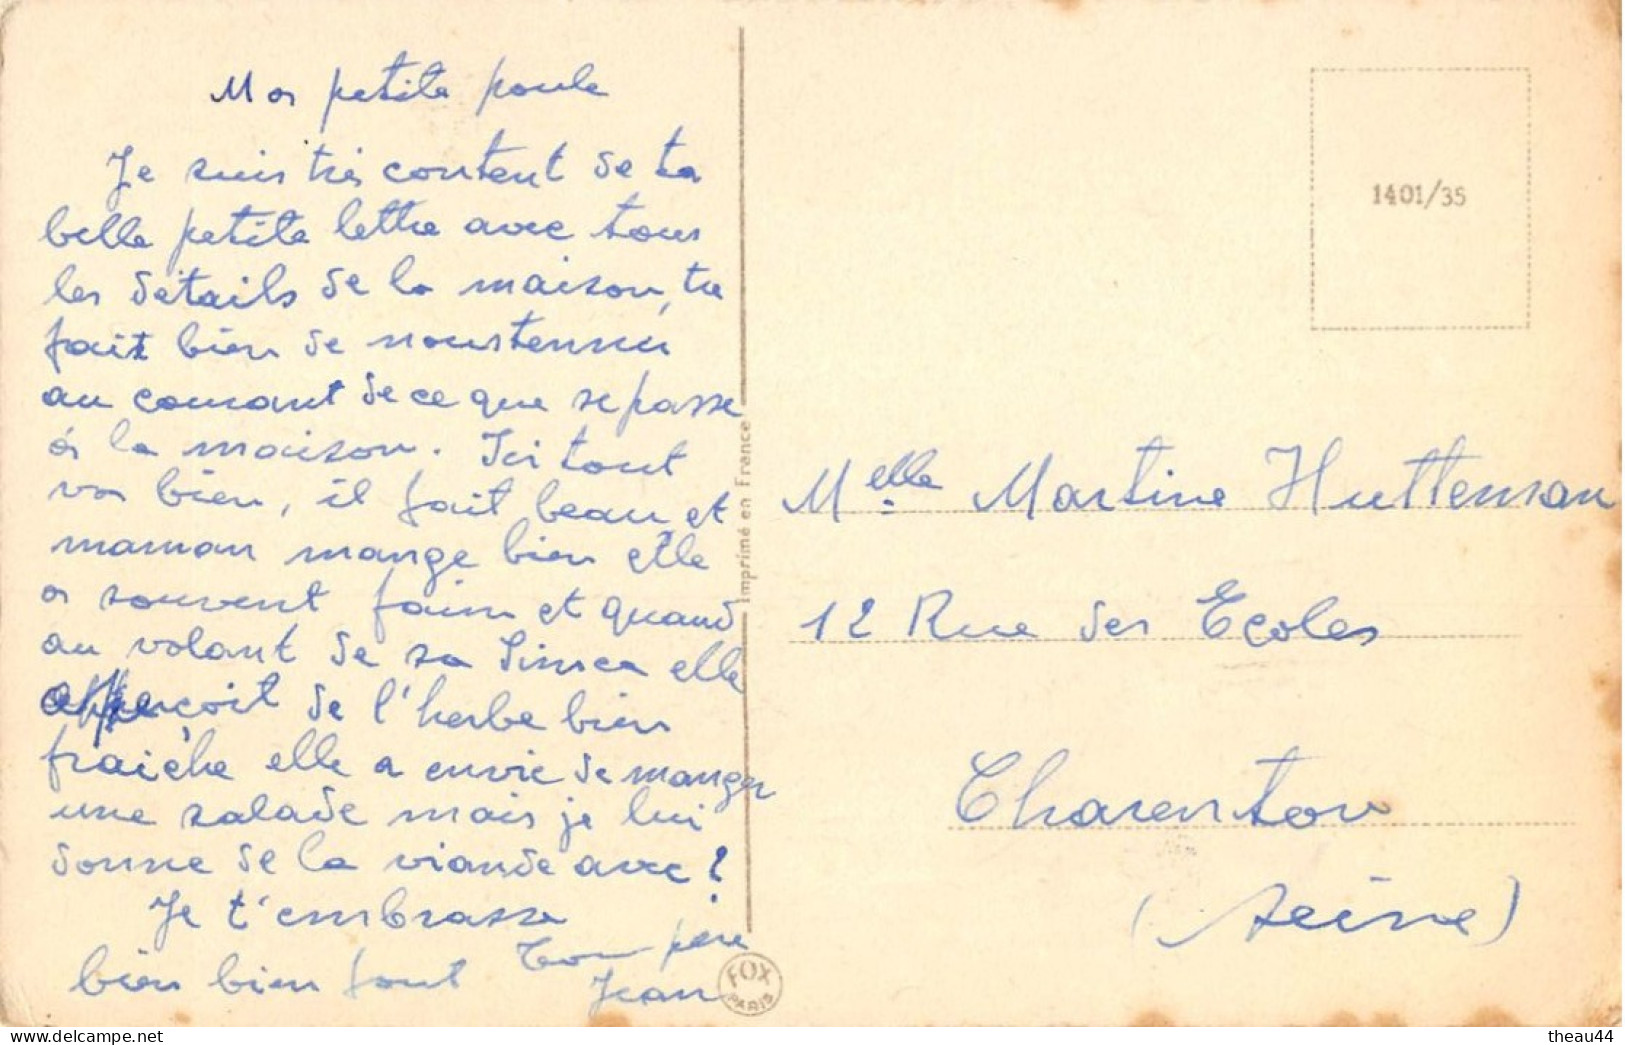 Ma petite poule
Je suis très content de ta
belle petite lettre avec tous
les détails de la maison, tu
fait bien de nous tennir
au courant de ce que se passe
à la maison. Ici tout
va bien, il fait beau et
maman mange bien elle
a souvent faim et quand
au volant de sa Simca elle
apperçoit de l'herbe bien
fraiche elle a envie de manger
une salade mais je lui
donne de la viande avec !
Je t'embrasse
bien bien fort
Ton père
Jean
Imprimé en France
FOX
PARIS
1401/35
Melle Martine Huttenman
12 Rue des Ecoles
Charenton
(Seine)
delcampe.net
theau44